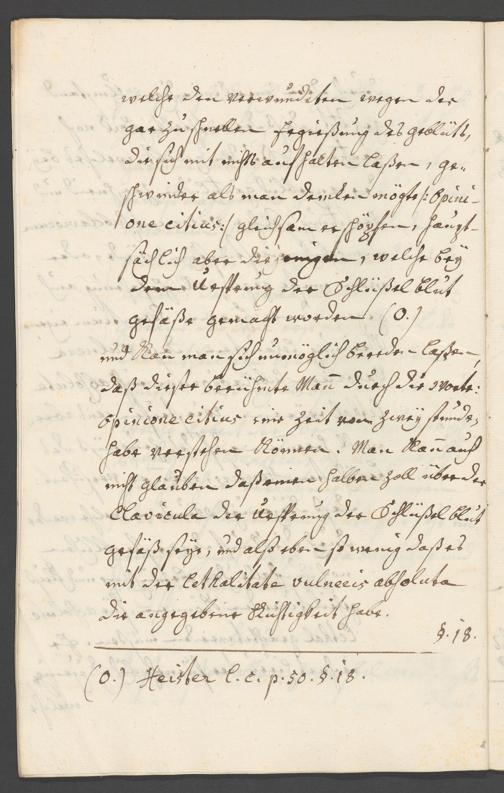 welche den verwundeten wegen der
gar zu schnellen Ergießung des geblüts,
die sich mit nichts aufhalten laßen, ge-
schwinder als man dencken mögte /: Opini-
one citius :/ gleichsam erschöpfen, haupt-
sächlich aber diejenigen, welche bey
dem Ursprung der Schlüßel blut
gefäße gemacht worden. (O.)
und Kan man sich unmöglich bereden laßen,
daß dieser berühmte Mañ durch die worte:
Opinione citius eine Zeit von zwey stunde,
habe verstehen Können. Man Kañ auch
nicht glauben daß einen halben Zoll über der
Clavicula der Ursprung der Schlüßel blut
gefäß seye, und alß eben so wenig daß es
mit der Lethalitate vulneris absoluta
die angegebene Richtigkeit habe.
§. 18.
(O.) Heister l. c. p. 50. §. 18.